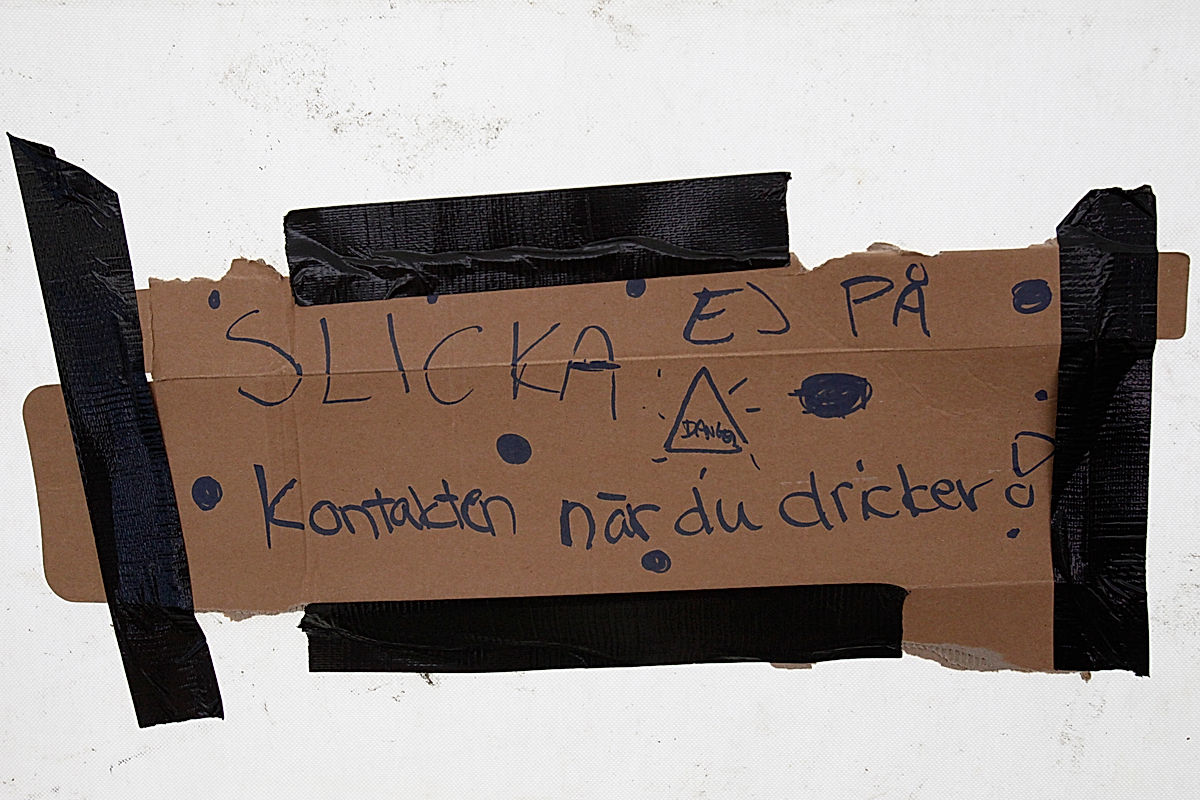 SLICKA EJ PÅ
DANGER
Kontakten när du dricker